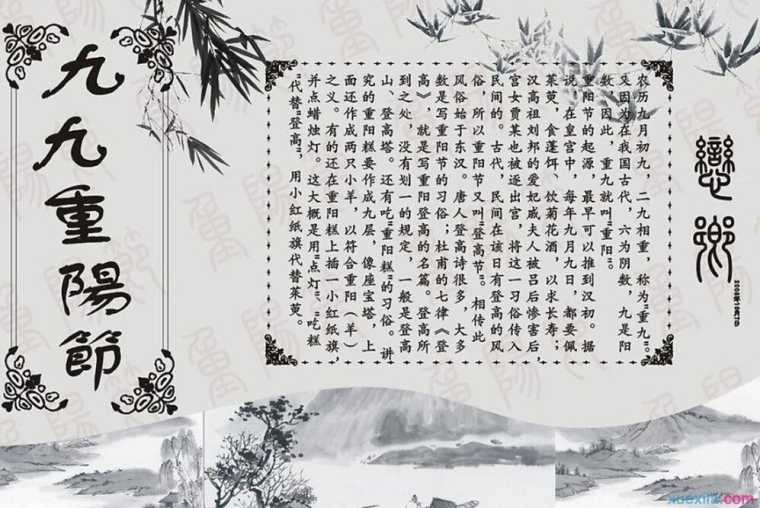 戀
农历九月初九，二九相重，称为"重九"。
又因为在我国古代，六为阴数，九是阳
数，因此，重九就叫"重阳"。
重阳节的起源，最早可以推到汉初。据
说，在皇宫中，每年九月九日，都要佩
茱萸，食蓬饵、饮菊花酒，以求长寿；
汉高祖刘邦的爱妃戚夫人被吕后惨害后，
宫女贾某也被逐出宫，将这一习俗传入
民间的。古代，民间在该日有登高的风
俗，所以重阳节又叫"登高节"。相传此
风俗始于东汉。唐人登高诗很多，大多
数是写重阳节的习俗；杜甫的七律《登
高》，就是写重阳登高的名篇。登高所
到之处，没有划一的规定，一般是登高
山、登高塔。还有吃"重阳糕"的习俗。讲
究的重阳糕要作成九层，像座宝塔，上
面还作成两只小羊，以符合重阳（羊）
之义。有的还在重阳糕上插一小红纸旗，
并点蜡烛灯。这大概是用"点灯"、"吃糕
"代替"登高"，用小红纸旗代替茱萸。
九九重陽節